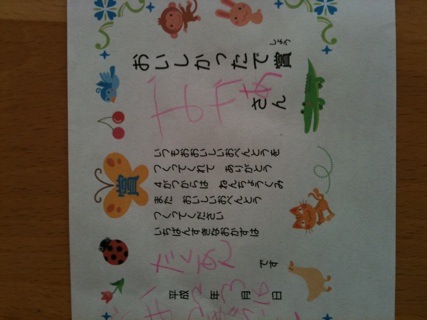 おいしかったで賞
しょう
おかあ さん
いつもおおいしいおべんとうを
つくってくれて ありがとう
4がつからは ねんちょうぐみ
また おいしいおべんとう
つくってください
いちばんすきなおかずは
たくあん です
平成 23年 3月 日
賞